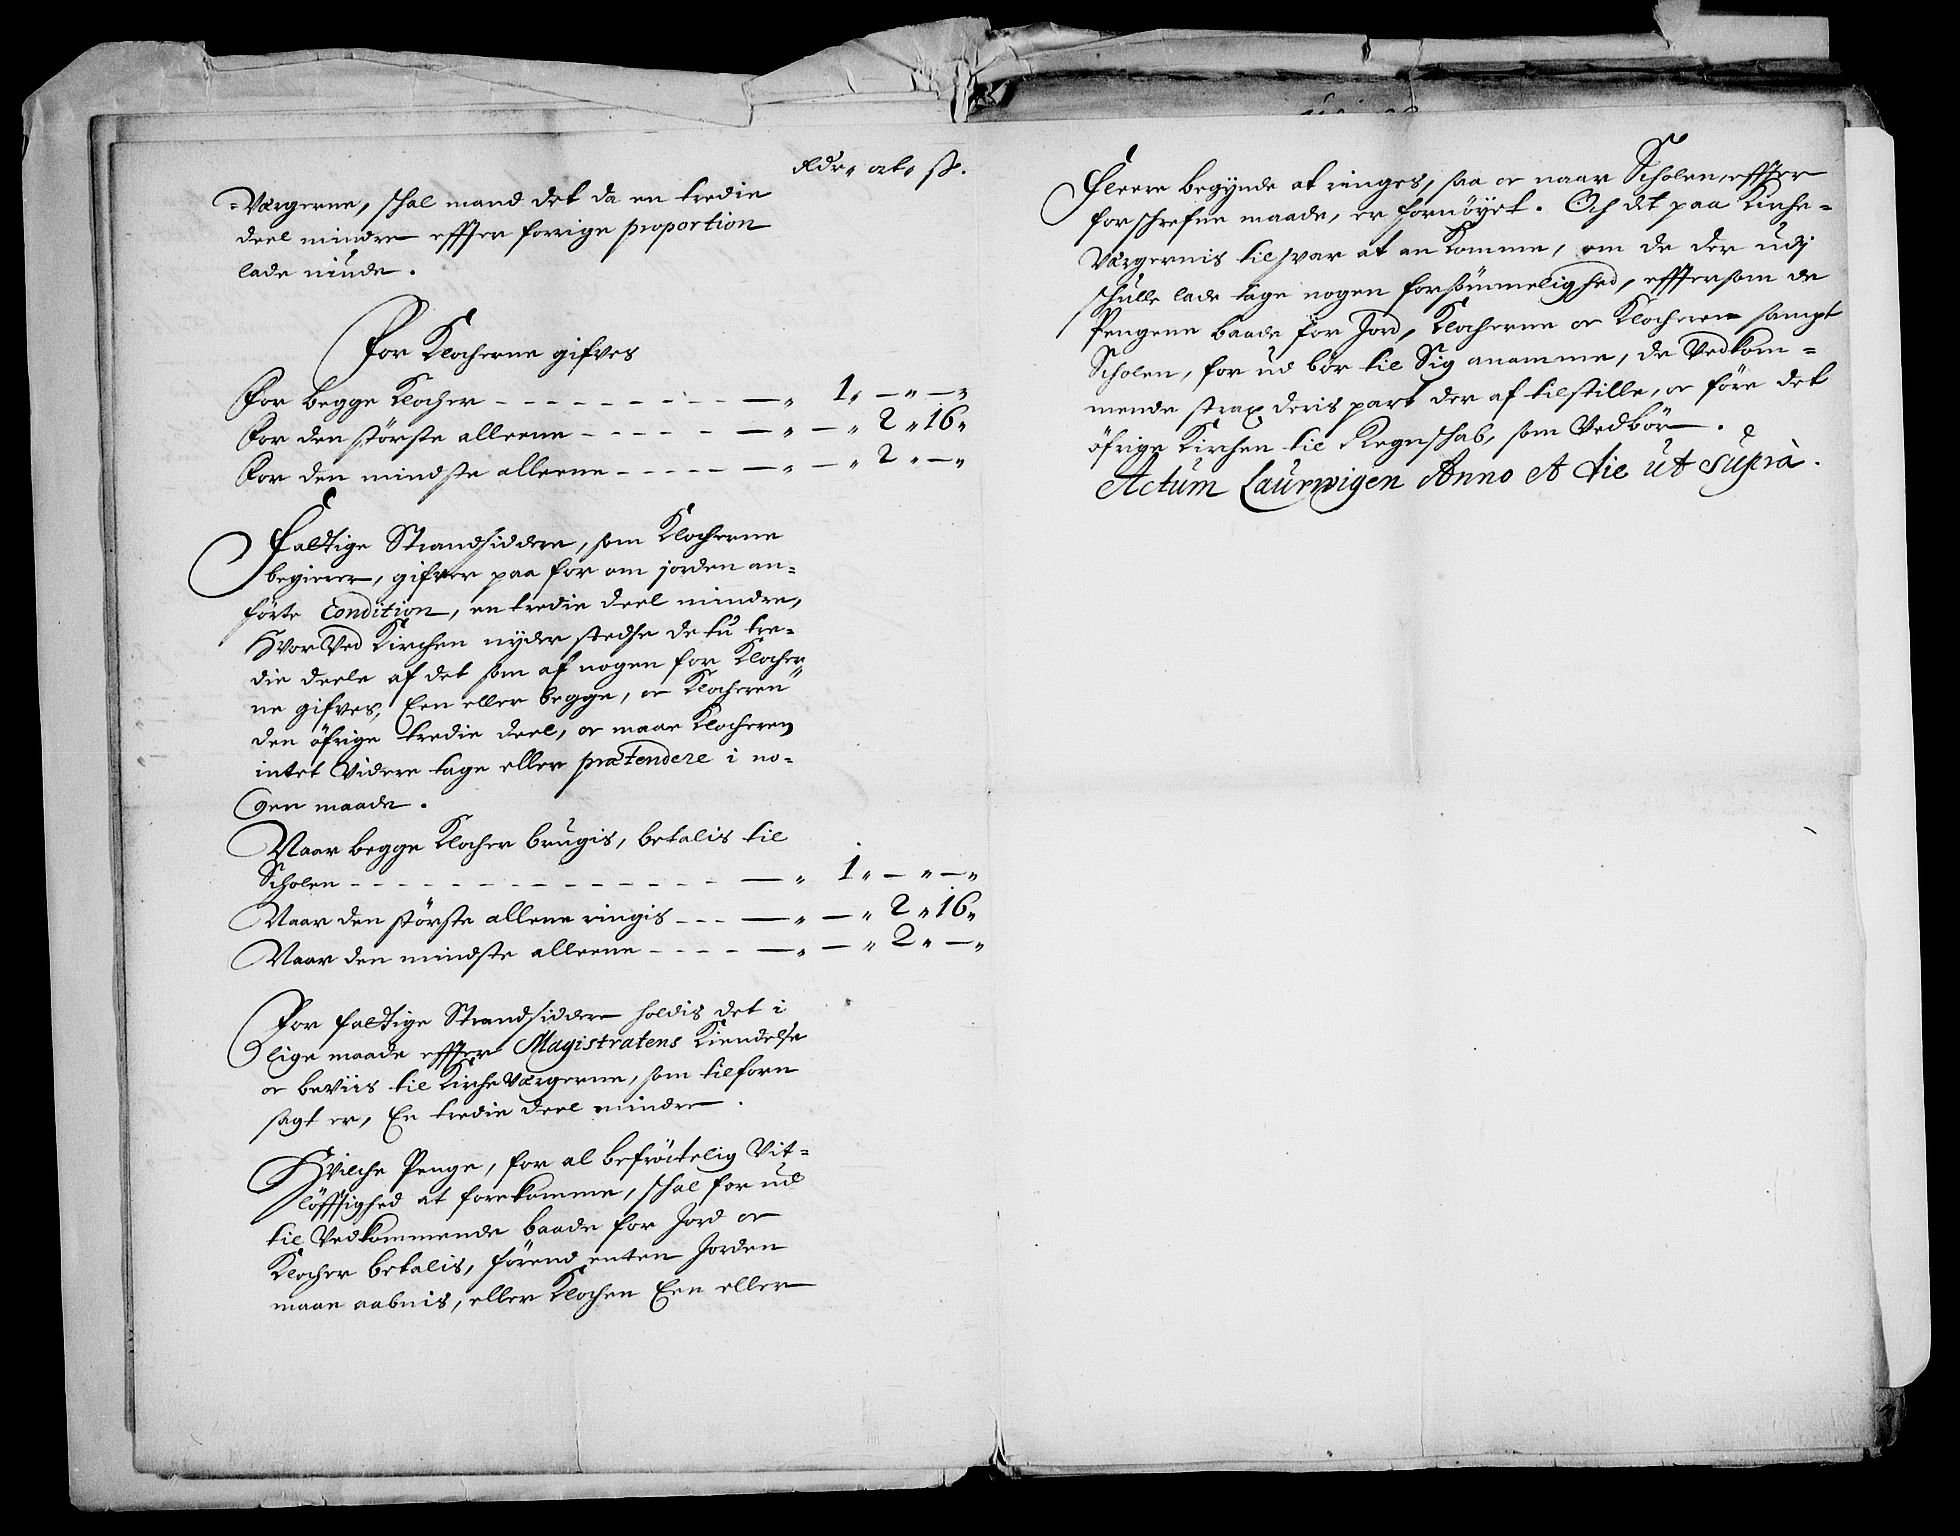 Rdr. ort. ß.
-Værgerne, schal mand det da en tredie
deel mindre effter forrige proportion
lade niude.
For Klocherne gifves
For begge Klocher - - - - - - - - - — „ 1„ — „ — „
For den störste alleene - - - - - — „ — „ 2 „ 16„
For den mindste alleene - - - - - — „ — „ 2 „ — „
Fattige Strandsiddere, som Klocherne
begierer, gifver paa for om jorden an=
förte Condition, en tredie deel mindre,
Hvor Ved Kirchen nyder stedse de tu tre=
die deele af det som af nogen for Klocher
ne gifves, Een eller begge, oc Klocheren
den öfrige tredie deel, oc maae Klocheren
intet Videre tage eller prætendere i no=
gen maade.
Naar begge Klocher brugis, betalis til
Scholen - - - - - - - - - - - - - — „ 1 „ — „ — „
Naar den störste allene ringis - - - — „ — „ 2 „ 16„
Naar den mindste alleene - - - - — „ — „ 2 „ — „
For fattige Strandsiddere holdis det i
lige maade effter Magistratens Kiendelse
oc beviis til Kirche Værgerne, som tilforn
sagt er, En tredie deel mindre.
Hvilche Penge, for al befröctelig Vit=
löfftighed at forekomme, schal for ud
til Vedkommende baade for Jord oc
Klocher betalis, förend enten Jorden
maae aabnis, eller Klochen Een eller
fleere begynde at ringes, saa oc naar Scholen effter
forschrefne maade, er fornöyet. Och det paa Kirche=
Værgernis tilsvar at an Komme, om de der udj
schulle lade tage nogen forsömmelighed, efftersom de
Pengene baade for Jord, Klocherne oc Klocheren sampt
Scholen, for ud bör til Sig anamme, de Vedkom=
mende strax deris part der af tilstille, oc före det
öfrige Kirchen til Regnschab, som Vedbör.
Actum Laurwigen Anno et die ut suprà.